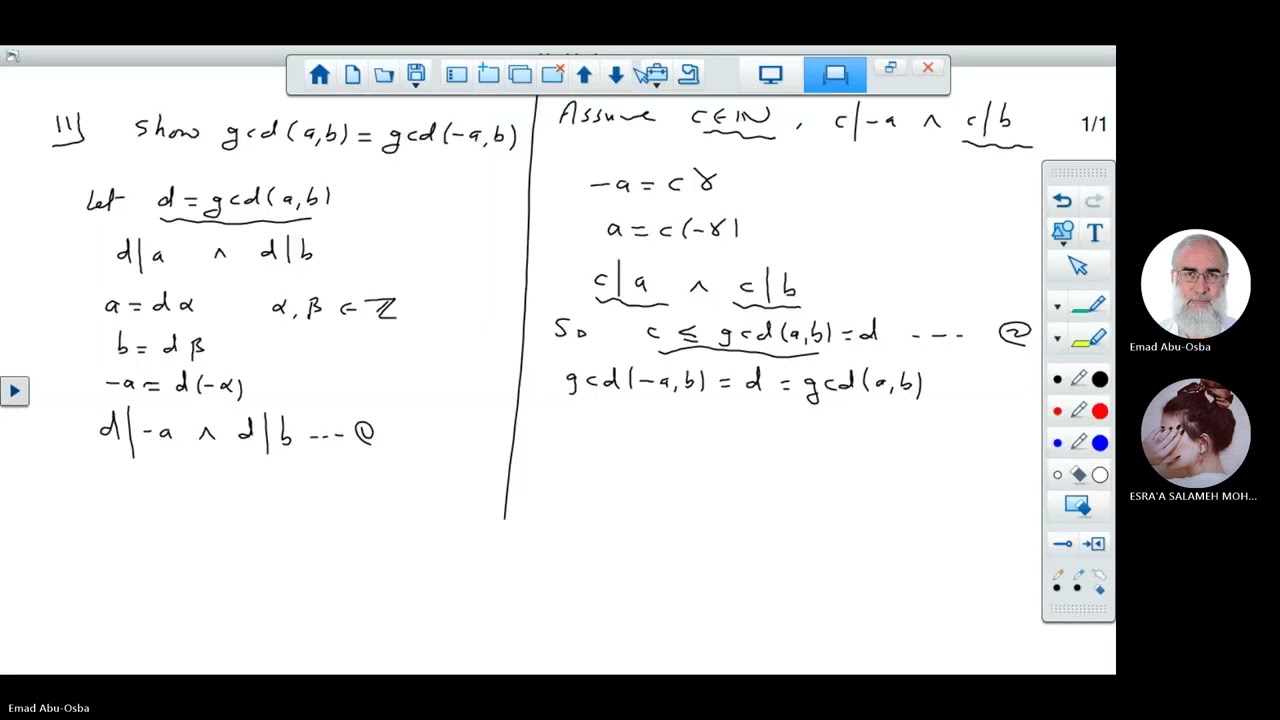 11) Show gcd(a,b) = gcd(-a,b)
Let d = gcd(a,b)
d|a ∧ d|b
a = dα α, β ∈ ℤ
b = dβ
-a = d(-α)
d|-a ∧ d|b --- ①
Assume c∈ℕ, c|-a ∧ c|b
-a = cγ
a = c(-γ)
c|a ∧ c|b
So c ≤ gcd(a,b) = d ---- ②
gcd(-a,b) = d = gcd(a,b)
1/1
T
Emad Abu-Osba
ESRA'A SALAMEH MOH...
Emad Abu-Osba